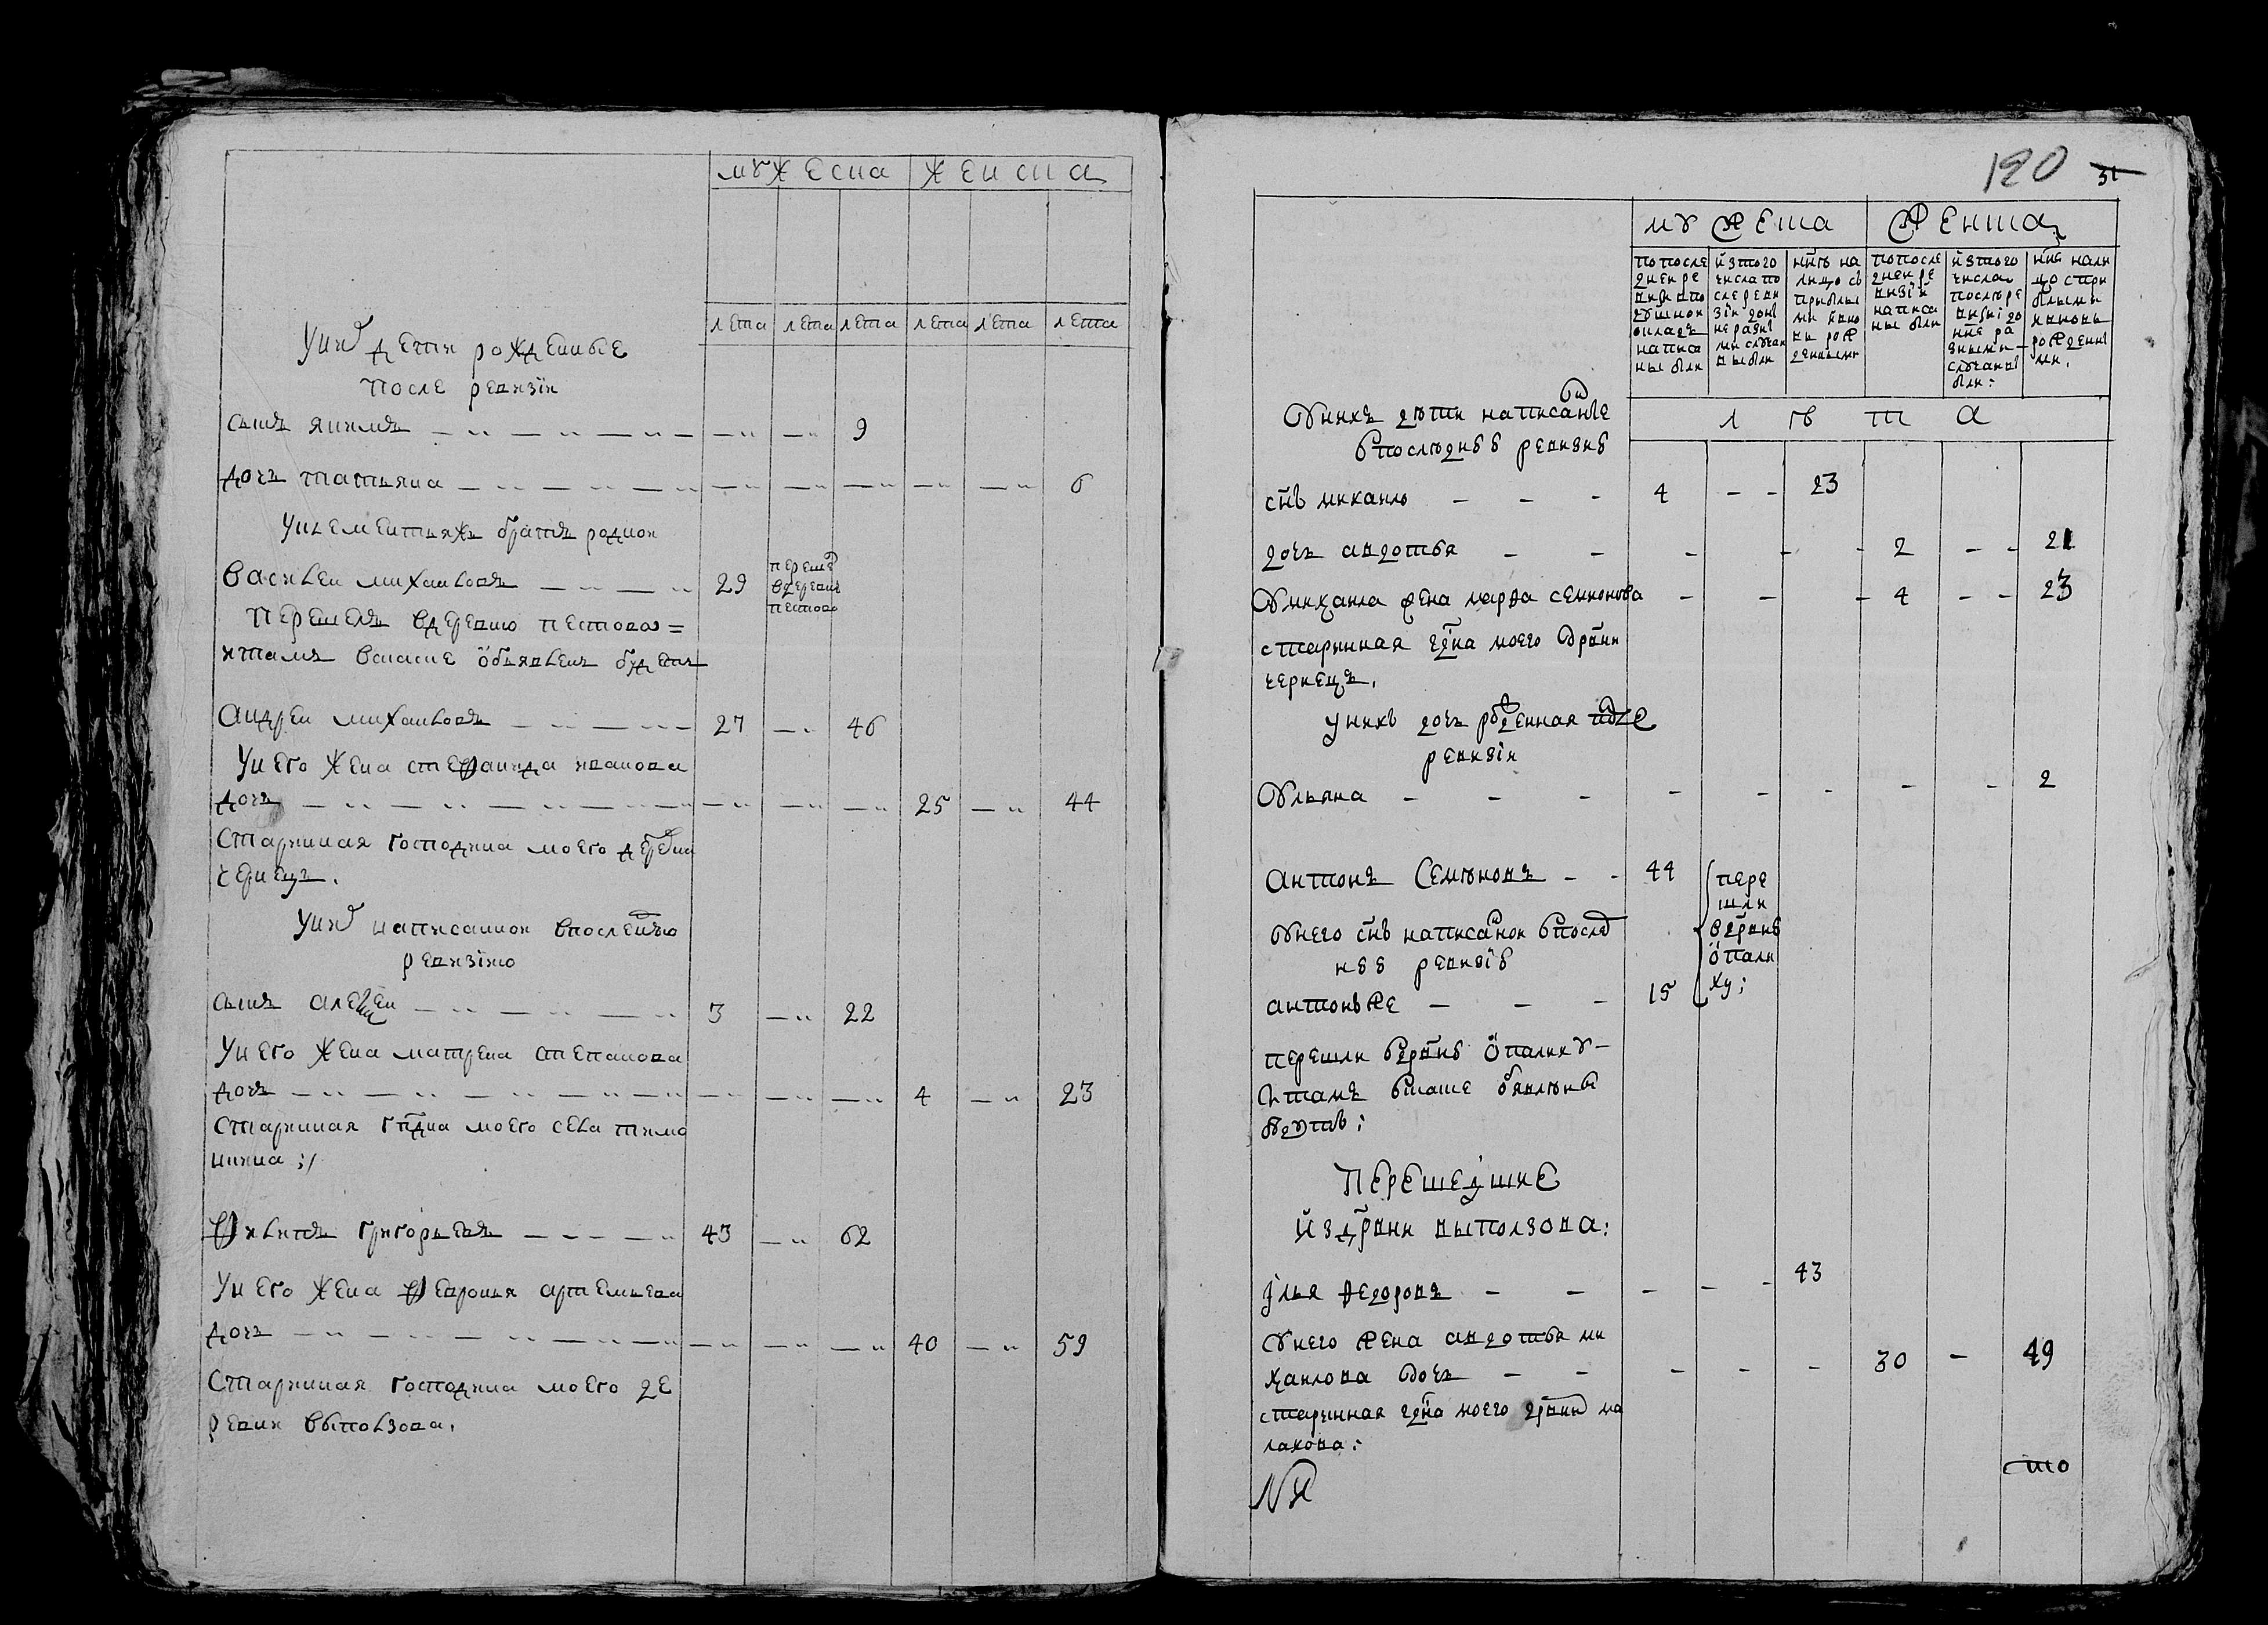 мужеска женска
лета лета лета лета лета лета
Уних дети рожденные
после ревизiи
сынъ якимъ 9
дочь татьяна 6
Уклементьяхъ братъ родион
Василеи михаиловъ 29 переше
вдеревн
пестово
Перешелъ вдеревню пестово =
итамъ всказке объявленъ будетъ
Андреи михаиловъ 27 46
Унего жена стефанида иванова
дочь 25 44
Старинная господина моего деревни
чернецъ.
Уних написаннои впоследнюю
ревизiю
сынъ алексеи 3 22
Унего жена матрена степанова
дочь 4 23
Старинная гпдна моего села тимо
нкина ;/
Филипъ григорьевъ 43 62
Унего жена февронья артемьева
дочь 40 59
Старинная господина моего де
ревни выползова.
120 31
мужеска женска
попосле
днеи ре
визи по
душнои
окладъ
написа
ны были
изтого
числа по
сле реви
зiи раз
ны были
ннѣ на
лицо съ
прибылы
ми вно
вь рож
денными
попосле
днеи ре
визiи
написа
ны были
изтого
числа
послѣ ре
визiи до
нне ра
зными
случаи
были:
нне нали
цо спри
былыми
ивновь
рожденны
ми.
лѣта
Унихъ дѣти написание
впослѣднѣи ревизиѣ
снъ михаило 4 23
дочь авдотья 2 21
Умихаила жена марфа семионова 4 23
старинная гдна моего дрвни
чернецъ.
унихъ дочь рожденная после
ревизiи
Ульяна 2
антонъ Семѣновъ 44 пере
шли
вдрвнѣ
опали
ху;
Унего снъ написанои впослѣд
нѣѣ ревизiѣ
антонъже 15
перешли вдрвнѣ опалиху
итамъ вскаске объявлѣны
будутъ;
Перешедшие
издрвни выползова:
iлья федоровъ 43
Унего жена авдотья ми
хаилова дочь 30 49
старинная гдна моего дрвни ма
лахова:
сто